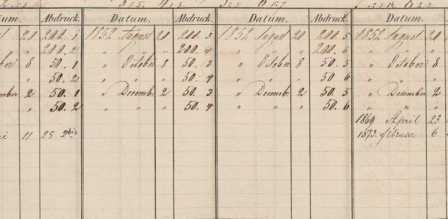 um. Abdruck. Datum. Abdruck. Datum. Abdruck. Datum.
20 200. 1 1852 August 20 200. 3 1852 August 20 200. 5 1852 August 20
" 200. 2 " " " 200. 4 " " " 200. 6 " " "
ober 8 50. 1 " October 8 50. 3 " October 8 50. 5 " October 8
" 50. 2 " " " 50. 4 " " " 50 6 " " "
ember 2 50. 1 " December 2 50. 3 " December 2 50. 5 " December 2
" 50. 2 " " " 50. 4 " " " 50. 6 " " "
1869 April 23
11 25 1873. Februar 6